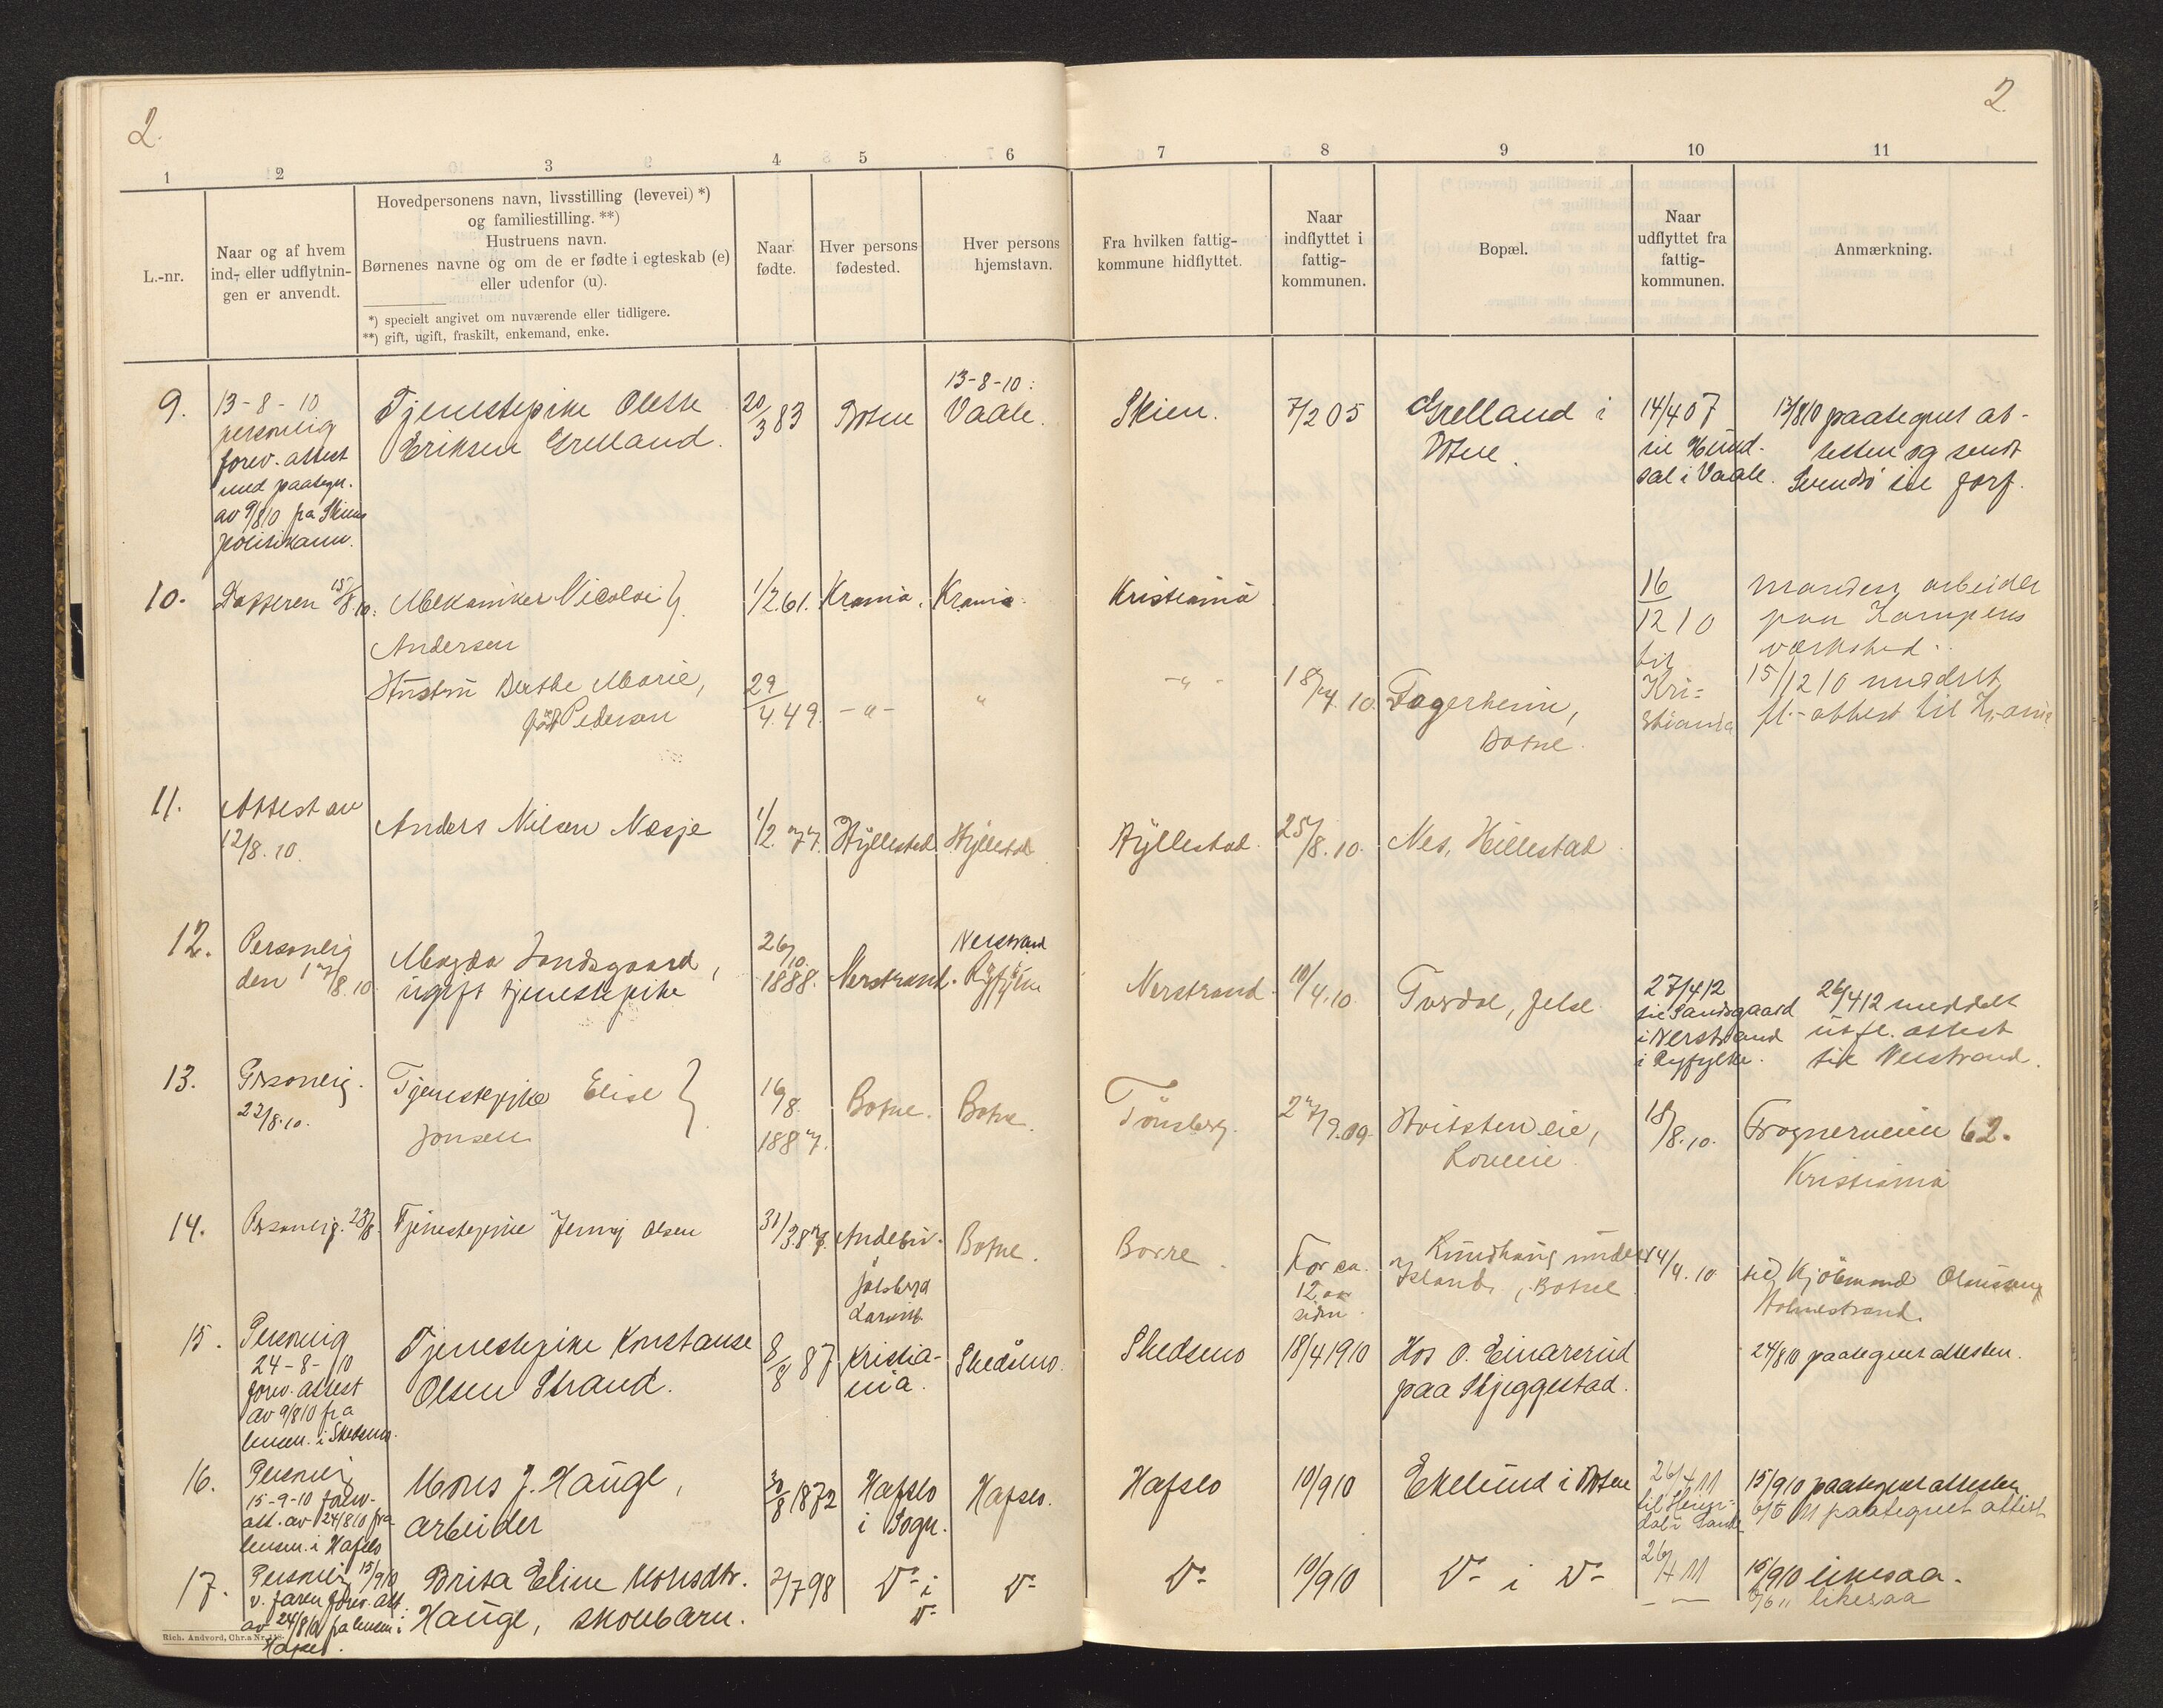 2.
2
1 2 3 4 5 6 7 8 9 10 11
L.-nr.
Naar og af hvem
ind- eller udflytnin-
gen er anvendt.
Hovedpersonens navn, livsstilling (levevei) *)
og familiestilling. **)
Hustruens navn.
Børnenes navne og om de er fødte i egteskab (e)
eller udenfor (u).
*) specielt angivet om nuværende eller tidligere.
**) gift, ugift, fraskilt, enkemand, enke.
Naar
fødte.
Hver persons
fødested.
Hver persons
hjemstavn.
Fra hvilken fattig-
kommune hidflyttet.
Naar
indflyttet i
fattig-
kommunen.
Bopæl.
Naar
udflyttet fra
fattig-
kommunen.
Anmærkning.
9.
13-8-10
personlig
forev. attest
med paategn.
av 9/8 10 fra Skiens
politikam.
Tjenestepike Olette
Eriksen Grelland.
20/3 83
Botne
13-8-10:
Vaale.
Skien.
7/2 05
Grelland i
Botne.
14/4 07
til Hund-
sal i Vaale.
13/8 10 paategnet at-
testen og sendt
til forf.
10.
15/8.10.
Mekaniker Nicolai
Andersen
Hustru Berthe Marie,
född Pedersen
1/2.61.
29/4.49.
Krania.
-"-
Krania.
"
Kristiania
-"-
18/4.10.
Fagerheim,
Botne.
16/12 10
til
Kri-
stiania
Manden arbeider
paa Kampens
værksted.
15/12 10 meddelt
fl.-attest til Kr.ania
11.
Attest av
12/8.10.
Anders Nilsen Nesje
1/2.77.
Hyllestad
Hyllestad
Hyllestad.
25/8.10.
Nes, Hillestad
12.
Personlig
den 17/8.10.
Magda Sandsgaard,
ugift tjenestepike
26/10.
1888.
Nerstrand.
Nerstrand
Ryfylke
Nerstrand.
10/4.10.
, Jelse.
27/4 12
til Sandsgaard
i Nerstrand
i Ryfylke.
26/4 12 meddelt
utfl. attest
til Nerstrand.
13.
Personlig.
22/8.10.
Tjenestepike Elise
Jonsen
16/8.
1887.
Botne.
Botne.
Tönsberg.
27/9.09.
Hvitstein eie,
18/8.10.
Frognerveien 62.
Kristiania
14.
Personlig. 23/8.
Tjenestepike Jenny Olsen
31/3.87.
Andebu.
Botne.
Borre.
For ca.
12 aar
siden.
Rundhaug under
Island, Botne
14/4.10.
til Kjöbmand
Holmestrand.
15.
Personlig
24-8-10
forev. attest
av 9/8 10 fra
lensm. i Skedsmo.
Tjenestepike Konstanse
Olsen Strand.
8/8 87
Kristia-
nia.
Skedsmo.
Skedsmo
18/4 1910
Hos O. Einarsrud
paa Skjeggestad.
24/8 10 paategnet attesten.
16.
Personlig
15-9-10 forev.
att. av 24/8 10 fra
lensm. i Hafslo
Mons J. Hauge,
arbeider
30/8 1872
Hafslo
i Sogn.
Hafslo.
Hafslo
10/9 10
Ekelund i Botne
26/4 11
til
dal i Sande
15/9 10 paategnet attesten
6/5 11 paategnet attest
17.
Personlig 15/9 10
v. faren forev. att.
av 24/8 10 fra lensm. i
Hafslo.
Brita Eline Monsdtr.
Hauge, skolebarn.
2/7 98
Do i
Do
Do
Do
10/9 10
Do i Do
26/4 11
15/9 10 likesaa.
6/5 11 likesaa
Rich. Andvord, Chr.a Nr.